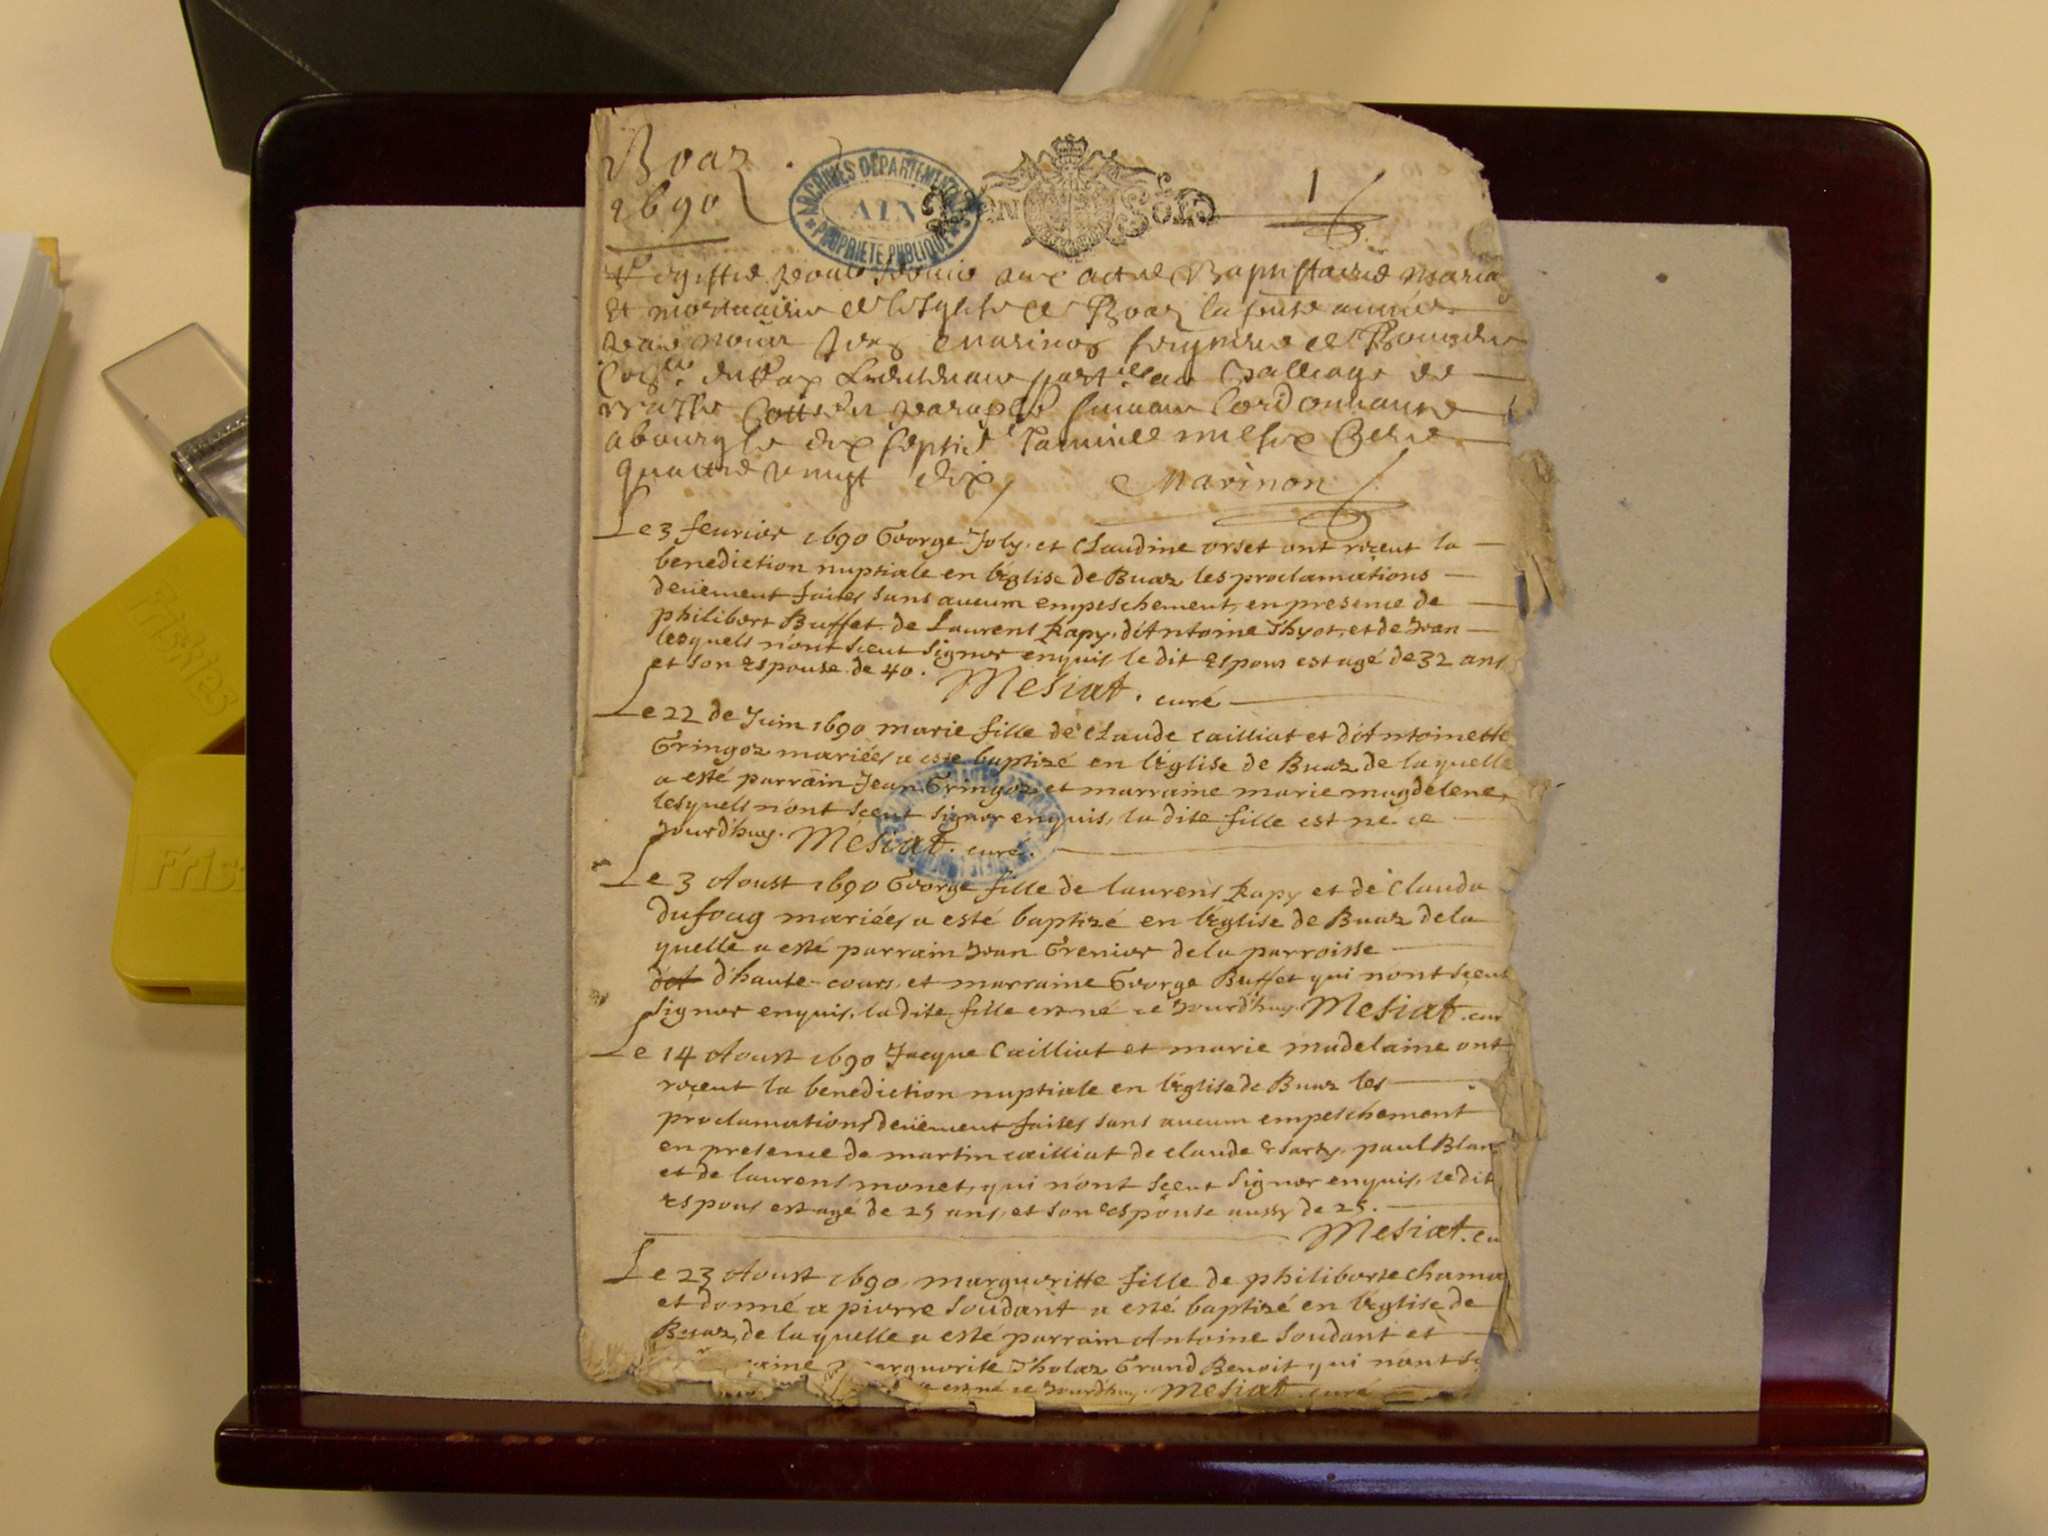 Boaz
1690
ARCHIVES DÉPARTEMENTALES
AIN
PROPRIÉTÉ PUBLIQUE
1
Registre pour servir aux actes Baptistaires
Et mortuaires de Boaz la année
seigneur de
Bailliage de
Cotté et paraphé suivant l'ordonnance
a bourg le dix septie Janvier mil six Cens
quattre vingt dix Marinon
Le 3 feurier 1690 George Joly et Claudine orset ont receut la
benediction nuptiale en l'église de Buaz les proclamations
deüement faites sans aucum empeschement, en presence de
philibert Buffet de Laurens Rapy, d'Antoine Thyot, et de Jean
lesquels n'ont sceut signer enquis, le dit Espous est agé de 32 ans
et son Espouse de 40. Mesiat. curé
Le 22 de Juin 1690 marie fille de Claude Cailliat et d'Antoinette
Gringoz mariées a esté baptizé en l'église de Buaz de laquelle
a esté parrain Jean Gringoz et marraine marie magdelene
lesquels n'ont sceut signer enquis, la dite fille est né ce
Jourd'huy. Mesiat. curé.
Le 3 Aoust 1690 George fille de laurens Rapy et de Clauda
dufoug mariées a esté baptizé en l'église de Buaz de la
quelle a esté parrain Jean Grenier de la parroisse
d'haute-cours, et marraine George Buffet qui n'ont sceut
signer enquis, la dite fille est né ce Jourd'huy. Mesiat. cur
Le 14 Aoust 1690 Jacque Cailliat et marie madelaine ont
receut la benediction nuptiale en l'église de Buaz les
proclamations deüement faites sans aucum empeschement
en presence de martin cailliat de claude paul Blan
et de laurens monet, qui n'ont sceut signer enquis, le dit
Espous est agé de 25 ans, et son Espouse aussy de 25.
Mesiat. cu
Le 23 Aoust 1690, margueritte fille de philiberte chama
et donné a pierre soudant a esté baptizé en l'église de
Buaz, de la quelle a esté parrain Antoine soudant et
marguerite Tholaz Grand Benoit qui n'ont
est né ce Jourd'huy. Mesiat. curé
Friskies
Fris